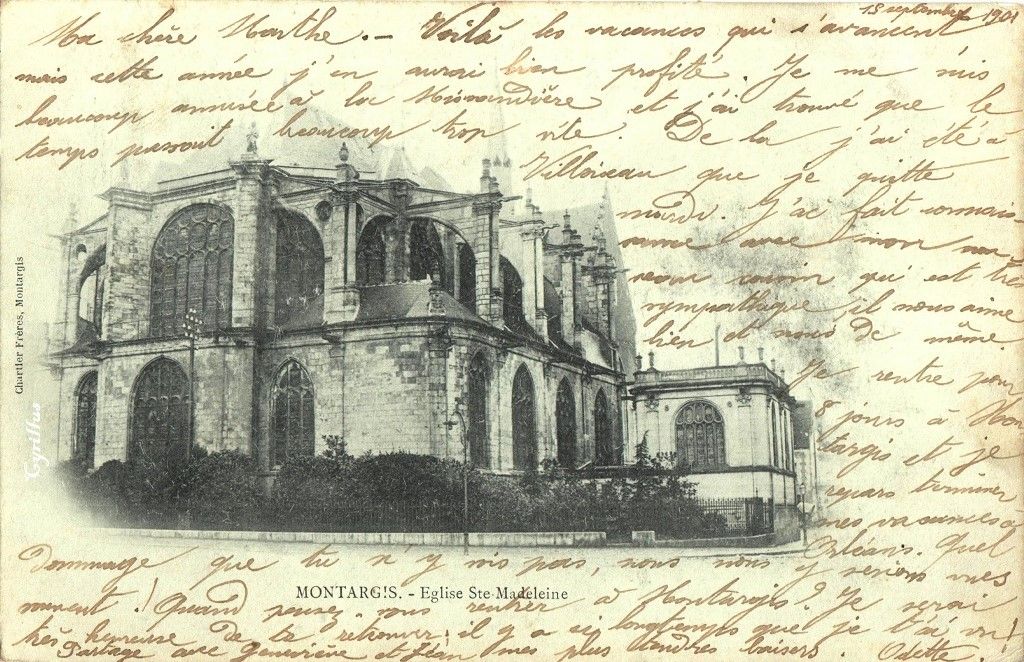 15 septembre 1901
Ma chère Marthe. - Voilà les vacances qui s'avancent
mais cette année j'en aurai bien profité. Je me suis
beaucoup amusée à la et j'ai trouvé que le
temps passait beaucoup trop vite. De la j'ai été à
que je quitte
mardi. J'ai fait connais
sance avec mon nou
veau cousin qui est très
sympathique il nous aime
bien et nous de même.
Je rentre pour
8 jours à Mon
targis et je
repars terminer
mes vacances à
Orléans. Quel
Dommage que tu n'y vois pas, nous nous y serions vues
MONTARGIS. - Eglise Ste Madeleine
Quand pensez vous rentrer à Montargis? Je serai
très heureuse de te retrouver; il y a si longtemps que je t'ai vu!
Partage avec Geneviève et Jean mes plus tendres baisers. Odette.
Chartier Frères, Montargis
Cyrillus